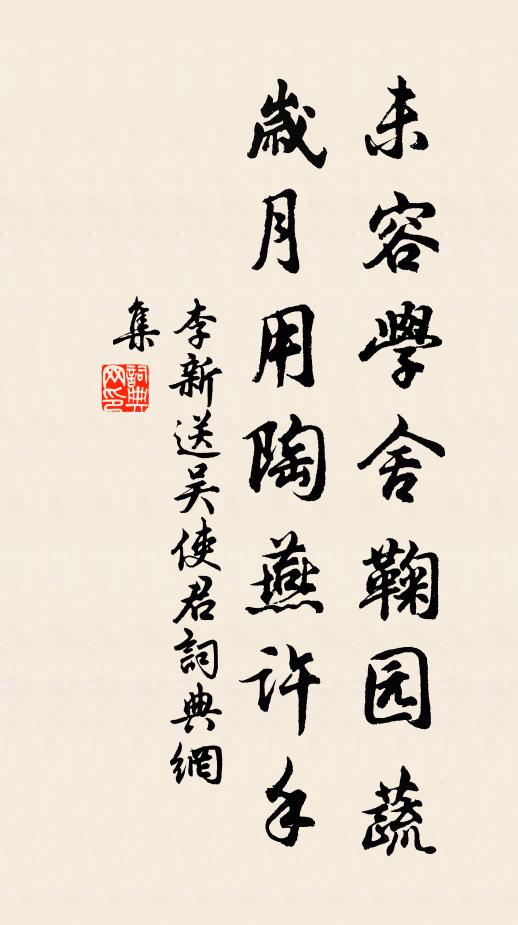 未容學舍鞠园蔬
歲月用陶燕许手
李新送吴使君詞典網
集
詞典网印